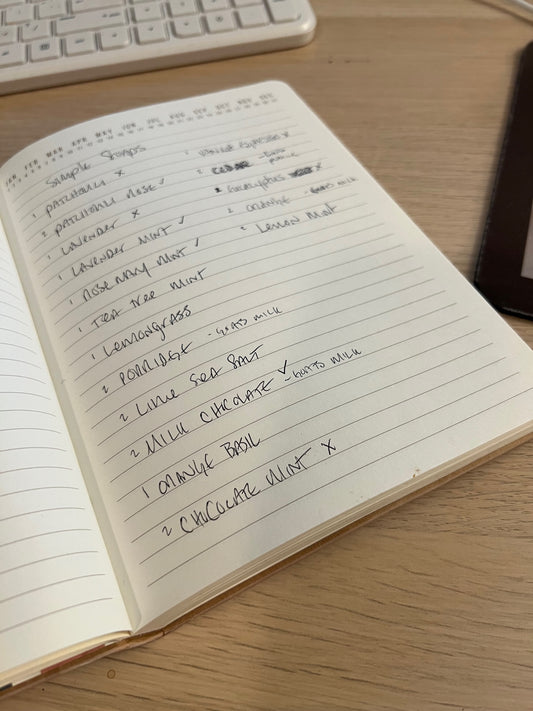 JAN FEB MAR APR MAY JUN JUL AUG SEP OCT NOV DEC
Simple Soaps
1 PATCHOULI x
2 PATCHOULI ROSE ✓
1 LAVENDER x
1 LAVENDER MINT ✓
1 ROSEMARY MINT ✓
1 TEA TREE MINT
1 LEMONGRASS
2 PORRIDGE - GOATS MILK
2 LIME SEA SALT
2 MILK CHCOLATE ✓ - GOATS MILK
1 ORANGE BASIL
2 CHOCOLATE MINT x
ESPRESSO x
CEDAR
2 EUCALYPTUS x
2 ORANGE - GOATS MILK
2 LEMON MINT